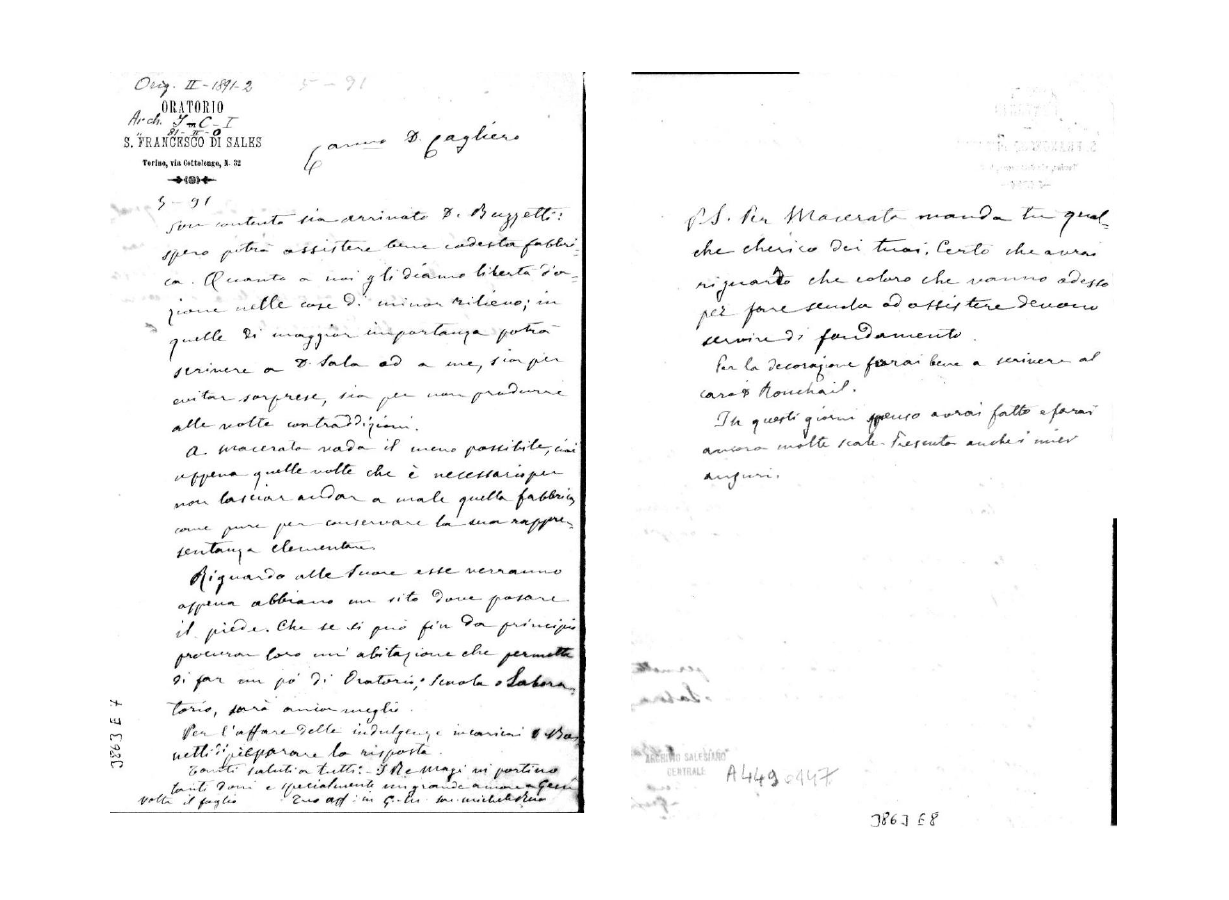 Orig. II - 1891-2
5 - 91
ORATORIO
Arch.
S. FRANCESCO DI SALES
Torino, via Cottolengo, N. 32
Carmo D. Cagliero
5 - 91
Son contento sia arrivato D. Buzzetti:
spero potrà assistere bene codesta fabbri-
ca. Quanto a noi gli diamo libertà d'a-
zione nelle cose di minor rilievo; in
quelle di maggior importanza potrà
scrivere a D. Sala ad a me, sia per
evitar sorprese, sia per non produrre
alle volte contraddizioni.
A Macerata vada il meno possibile, cioè
appena quelle volte che è necessario per
non lasciar andar a male quella fabbrica,
come pure per conservare la sua rappre-
sentanza elementare
Riguardo alle Suore esse verranno
appena abbiano un sito dove posare
il piede. Che se si può fin da principio
procurar loro un' abitazione che permetta
di far un pò di Oratorio, Scuola o Labora-
torio, sarà ancor meglio.
Per l'affare delle indulgenze incaricai D. Bo-
netti di preparare la risposta.
Tanti saluti a tutti. I Re Magi vi portino
tanti doni e specialmente un grande amore a Gesù
volta il foglio Tuo aff. in G. M. Sac. Michele Rua
J863 E 7
P.S. Per Macerata manda tu qual-
che cherico dei tuoi. Certo che avrai
riguardo che coloro che vanno adesso
per fare scuola ad assistere devono
servire di fondamento.
Per la decorazione farai bene a scrivere al
caro D. Ronchail.
In questi giorni spesso avrai fatto e farai
ancora molte scale. Presenta anche i miei
auguri.
ARCHIVIO SALESIANO
CENTRALE
A4490147
J863 E8